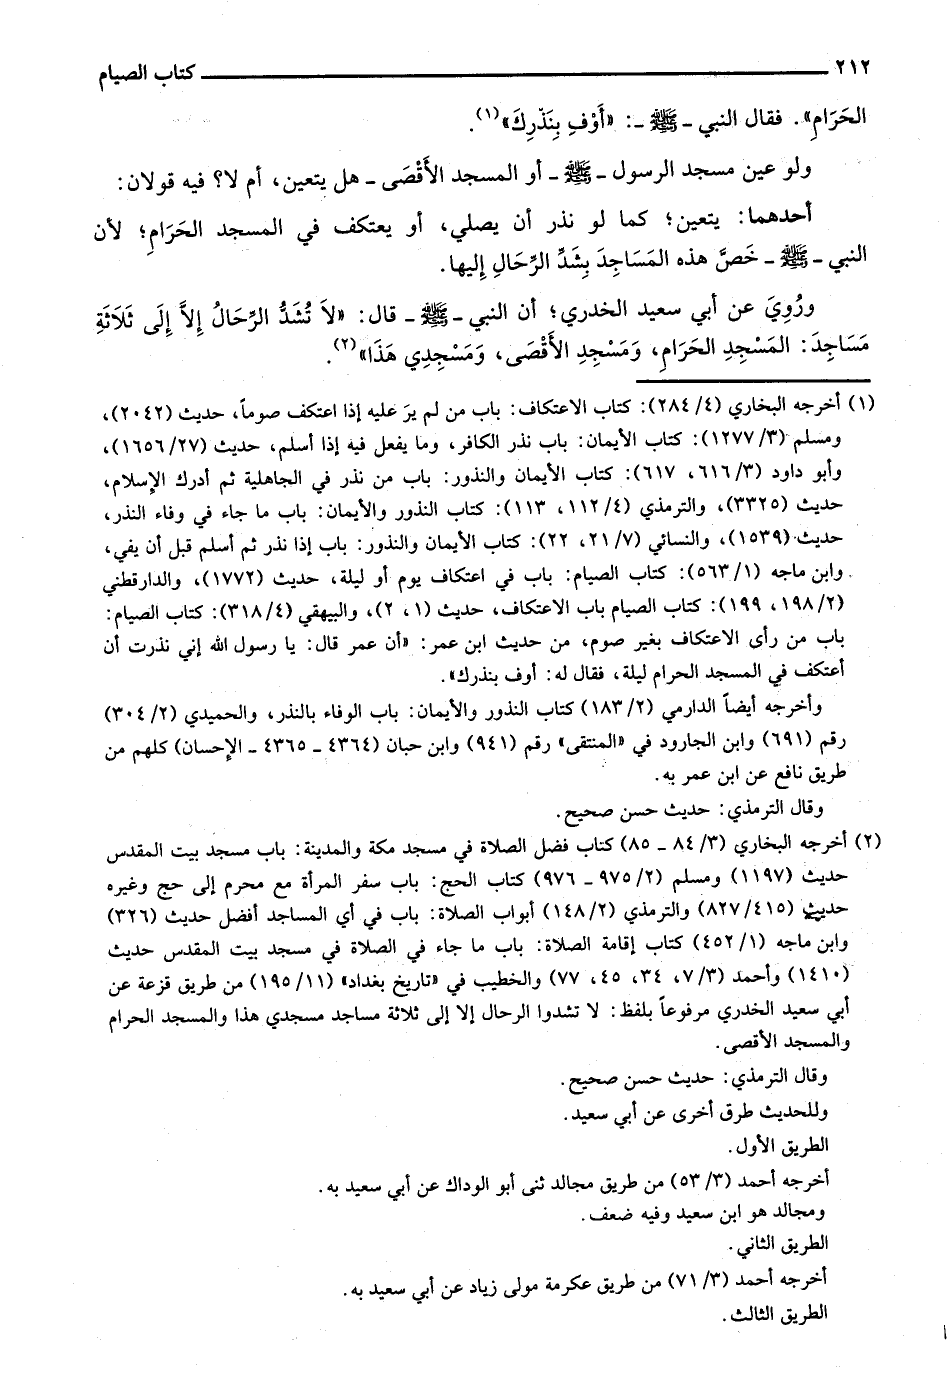 ٢١٢ كتاب الصيام
الحَرَامِ». فقال النبي ـ ﷺ ـ: «أَوْفِ بِنَذْرِكَ»(١).
ولو عين مسجد الرسول ـ ﷺ ـ أو المسجد الأَقْصَى ـ هل يتعين، أم لا؟ فيه قولان:
أحدهما: يتعين؛ كما لو نذر أن يصلي، أو يعتكف في المسجد الحَرَامِ؛ لأن
النبي ـ ﷺ ـ خَصَّ هذه المَسَاجِدَ بِشَدِّ الرِّحَالِ إليها.
ورُوِيَ عن أبي سعيد الخدري؛ أن النبي ـ ﷺ ـ قال: «لاَ تُشَدُّ الرِّحَالُ إِلاَّ إِلَى ثَلاَثَةِ
مَسَاجِدَ: المَسْجِدِ الحَرَامِ، وَمَسْجِدِ الأَقْصَى، وَمَسْجِدِي هَذَا»(٢).
(١) أخرجه البخاري (٤/ ٢٨٤): كتاب الاعتكاف: باب من لم يرَ عليه إذا اعتكف صوماً، حديث (٢٠٤٢)،
ومسلم (٣/ ١٢٧٧): كتاب الأيمان: باب نذر الكافر، وما يفعل فيه إذا أسلم، حديث (٢٧/ ١٦٥٦)،
وأبو داود (٣/ ٦١٦، ٦١٧): كتاب الأيمان والنذور: باب من نذر في الجاهلية ثم أدرك الإسلام،
حديث (٣٣٢٥)، والترمذي (٤/ ١١٢، ١١٣): كتاب النذور والأيمان: باب ما جاء في وفاء النذر،
حديث (١٥٣٩)، والنسائي (٧/ ٢١، ٢٢): كتاب الأيمان والنذور: باب إذا نذر ثم أسلم قبل أن يفي،
وابن ماجه (١/ ٥٦٣): كتاب الصيام: باب في اعتكاف يوم أو ليلة، حديث (١٧٧٢)، والدارقطني
(٢/ ١٩٨، ١٩٩): كتاب الصيام باب الاعتكاف، حديث (١، ٢)، والبيهقي (٤/ ٣١٨): كتاب الصيام:
باب من رأى الاعتكاف بغير صوم، من حديث ابن عمر: «أن عمر قال: يا رسول الله إني نذرت أن
أعتكف في المسجد الحرام ليلة، فقال له: أوف بنذرك».
وأخرجه أيضاً الدارمي (٢/ ١٨٣) كتاب النذور والأيمان: باب الوفاء بالنذر، والحميدي (٢/ ٣٠٤)
رقم (٦٩١) وابن الجارود في «المنتقى» رقم (٩٤١) وابن حبان (٤٣٦٤ ـ ٤٣٦٥ ـ الإحسان) كلهم من
طريق نافع عن ابن عمر به.
وقال الترمذي: حديث حسن صحيح.
(٢) أخرجه البخاري (٣/ ٨٤ ـ ٨٥) كتاب فضل الصلاة في مسجد مكة والمدينة: باب مسجد بيت المقدس
حديث (١١٩٧) ومسلم (٢/ ٩٧٥ ـ ٩٧٦) كتاب الحج: باب سفر المرأة مع محرم إلى حج وغيره
حديث (٤١٥/ ٨٢٧) والترمذي (٢/ ١٤٨) أبواب الصلاة: باب في أي المساجد أفضل حديث (٣٢٦)
وابن ماجه (١/ ٤٥٢) كتاب إقامة الصلاة: باب ما جاء في الصلاة في مسجد بيت المقدس حديث
(١٤١٠) وأحمد (٣/ ٧، ٣٤، ٤٥، ٧٧) والخطيب في «تاريخ بغداد» (١١/ ١٩٥) من طريق قزعة عن
أبي سعيد الخدري مرفوعاً بلفظ: لا تشدوا الرحال إلا إلى ثلاثة مساجد مسجدي هذا والمسجد الحرام
والمسجد الأقصى.
وقال الترمذي: حديث حسن صحيح.
وللحديث طرق أخرى عن أبي سعيد.
الطريق الأول.
أخرجه أحمد (٣/ ٥٣) من طريق مجالد ثنى أبو الوداك عن أبي سعيد به.
ومجالد هو ابن سعيد وفيه ضعف.
الطريق الثاني.
أخرجه أحمد (٣/ ٧١) من طريق عكرمة مولى زياد عن أبي سعيد به.
الطريق الثالث.